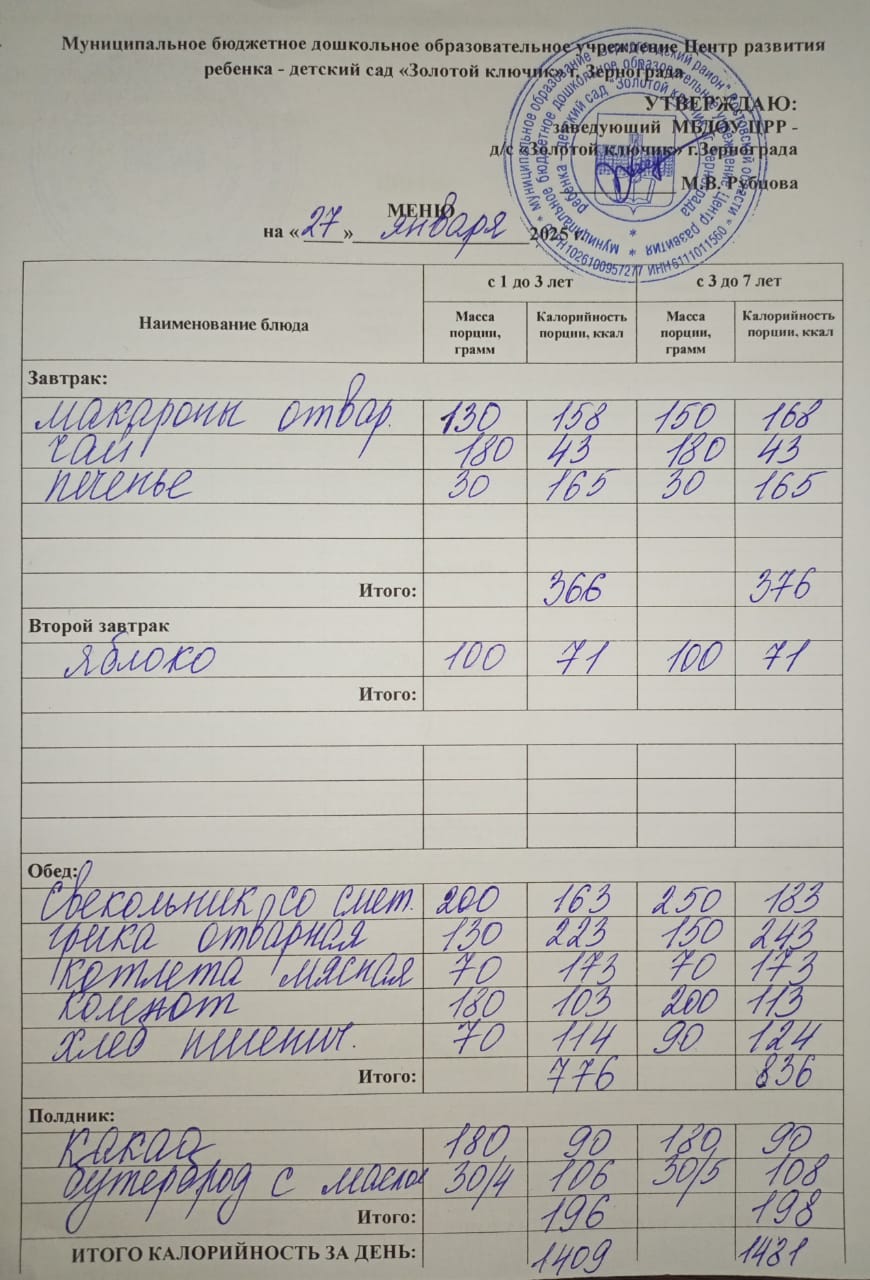 Муниципальное бюджетное дошкольное образовательное учреждение Центр развития
ребенка - детский сад «Золотой ключик» г. Зернограда
УТВЕРЖДАЮ:
заведующий МБДОУ ЦРР -
д/с «Золотой ключик» г.Зернограда
М.В. Рубцова
МЕНЮ
на «27» января 2025 г.
Наименование блюда с 1 до 3 лет с 3 до 7 лет
Масса порции, грамм Калорийность порции, ккал Масса порции, грамм Калорийность порции, ккал
Завтрак:
макароны отвар. 130 158 150 168
чай 180 43 180 43
печенье 30 165 30 165
Итого: 366 376
Второй завтрак
яблоко 100 71 100 71
Итого:
Обед:
Свекольник со смет. 200 163 250 183
греча отварная 130 223 150 243
котлета мясная 70 173 70 173
компот 180 103 200 113
хлеб пшенич. 70 114 90 124
Итого: 776 836
Полдник:
какао 180 90 180 90
бутерброд с маслом 30/4 106 30/5 108
Итого: 196 198
ИТОГО КАЛОРИЙНОСТЬ ЗА ДЕНЬ: 1409 1481